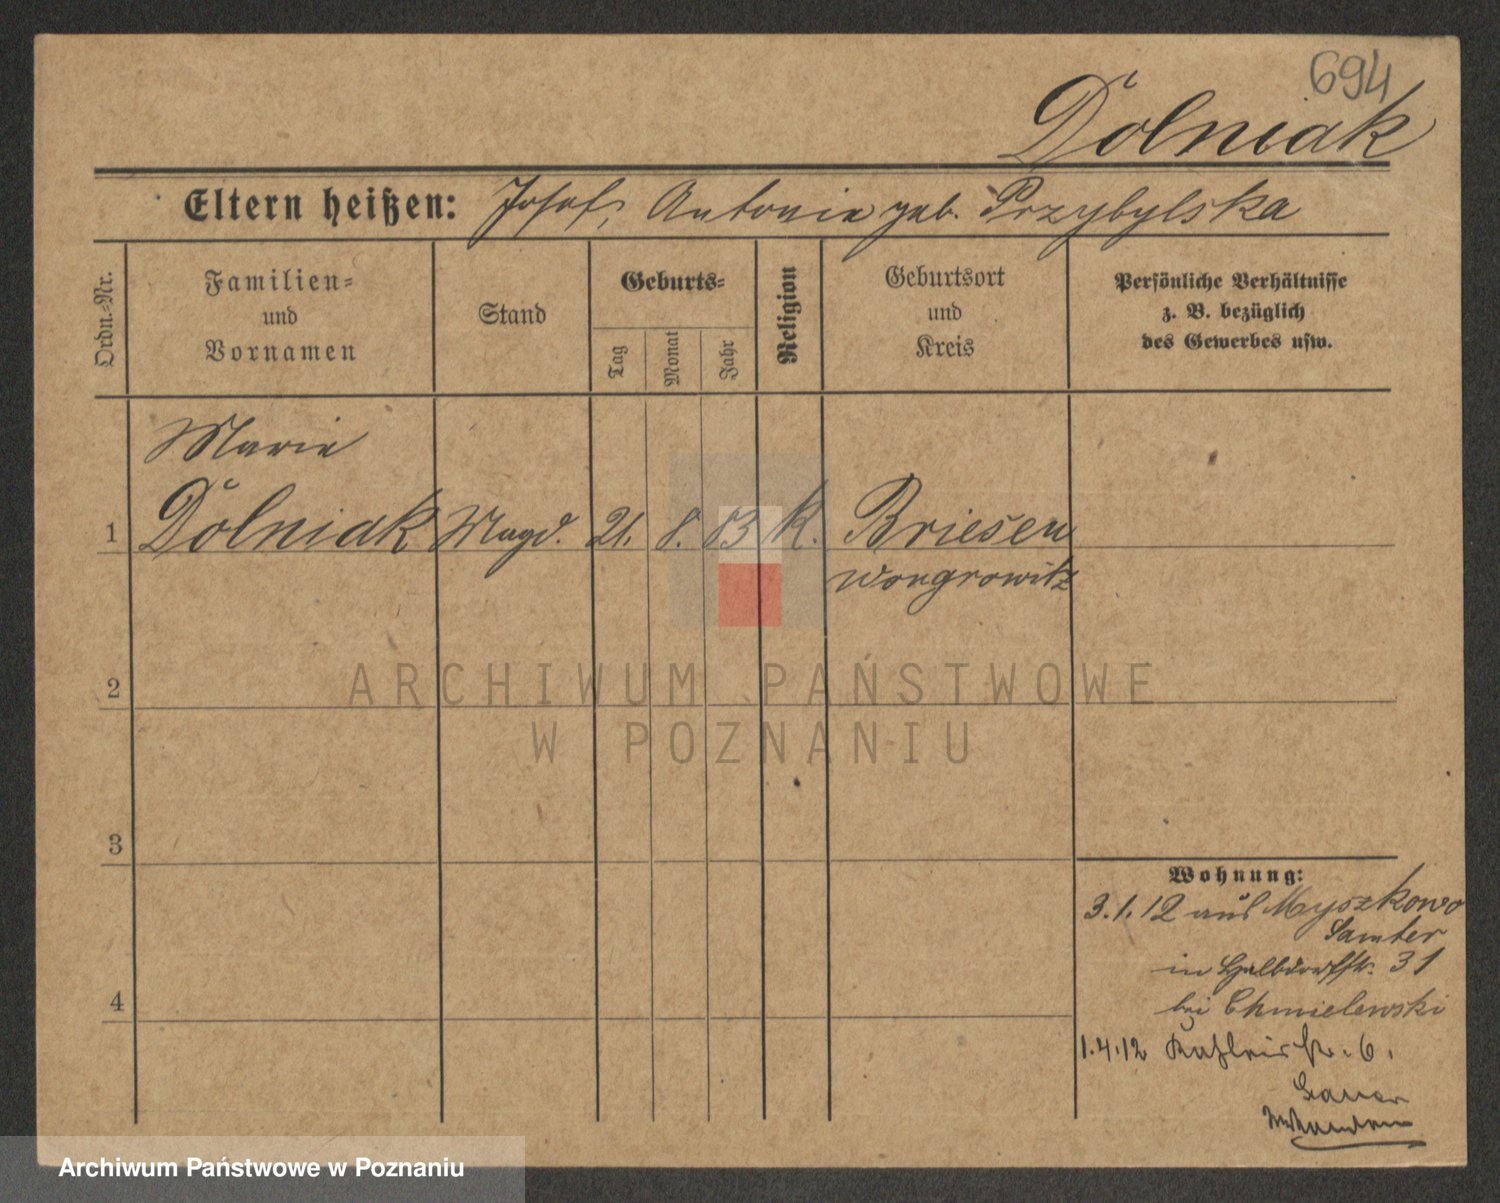 694
Dolniak
Eltern heißen: Josef, Antonie geb. Przybylska
Ordn.=Nr.
Familien=
und
Vornamen
Stand
Geburts=
Tag
Monat
Jahr
Religion
Geburtsort
und
Kreis
Persönliche Verhältnisse
z. B. bezüglich
des Gewerbes usw.
Marie
1 Dolniak Magd. 21. 8. 83 K. Briesen
Wongrowitz
2
3
4
Wohnung:
3.1.12 aus Myszkowo
Samter
in Halbdorfstr. 31
bei Chmielewski
1.4.12 str. 6.
ARCHIWUM PAŃSTWOWE
W POZNANIU
Archiwum Państwowe w Poznaniu